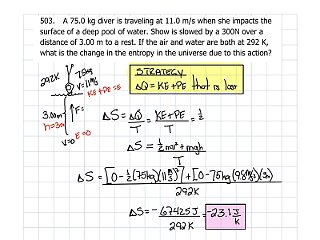 503. A 75.0 kg diver is traveling at 11.0 m/s when she impacts the
surface of a deep pool of water. Show is slowed by a 300N over a
distance of 3.00 m to a rest. If the air and water are both at 292 K,
what is the change in the entropy in the universe due to this action?
STRATEGY
ΔQ = KE + PE that is lost
292K
75kg
V=11m/s
KE+PE=E
3.00m
F=
h=3m
V=0
E=0
ΔS = ΔQ/T = KE+PE/T = 1/2
ΔS = 1/2mv²+mgh/T
ΔS = [0-1/2(75kg)(11m/s)²]+[0-75kg(9.8m/s²)(3)]/292K
ΔS = -6742.5J/292K = -23.1J/K